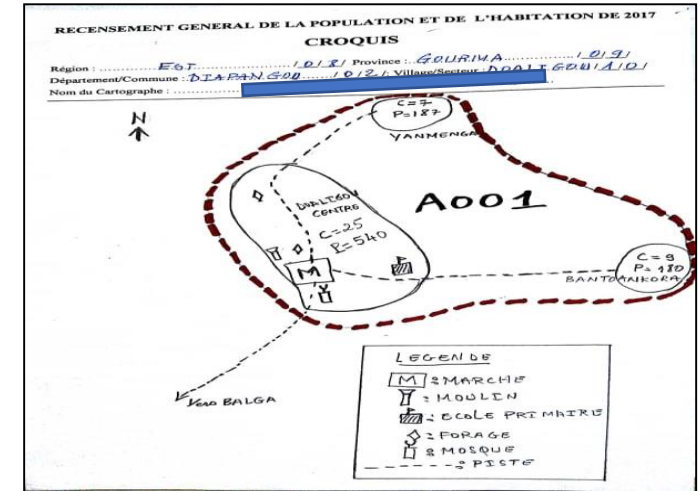 RECENSEMENT GENERAL DE LA POPULATION ET DE L'HABITATION DE 2017
CROQUIS
Région : EST /0/8/ Province : GOURMA /0/9/
Département/Commune : DIAPANGOU /0/2/ Village/Secteur : DOALIGOU/1/0/
Nom du Cartographe :
N
C=7
P=187
YANMENGA
A001
DOALIGOU
CENTRE
C=25
P=540
M
C=9
P=180
BANTOANKORA
Vers BALGA
LEGENDE
M : MARCHE
: MOULIN
: ECOLE PRIMAIRE
: FORAGE
: MOSQUE
: PISTE